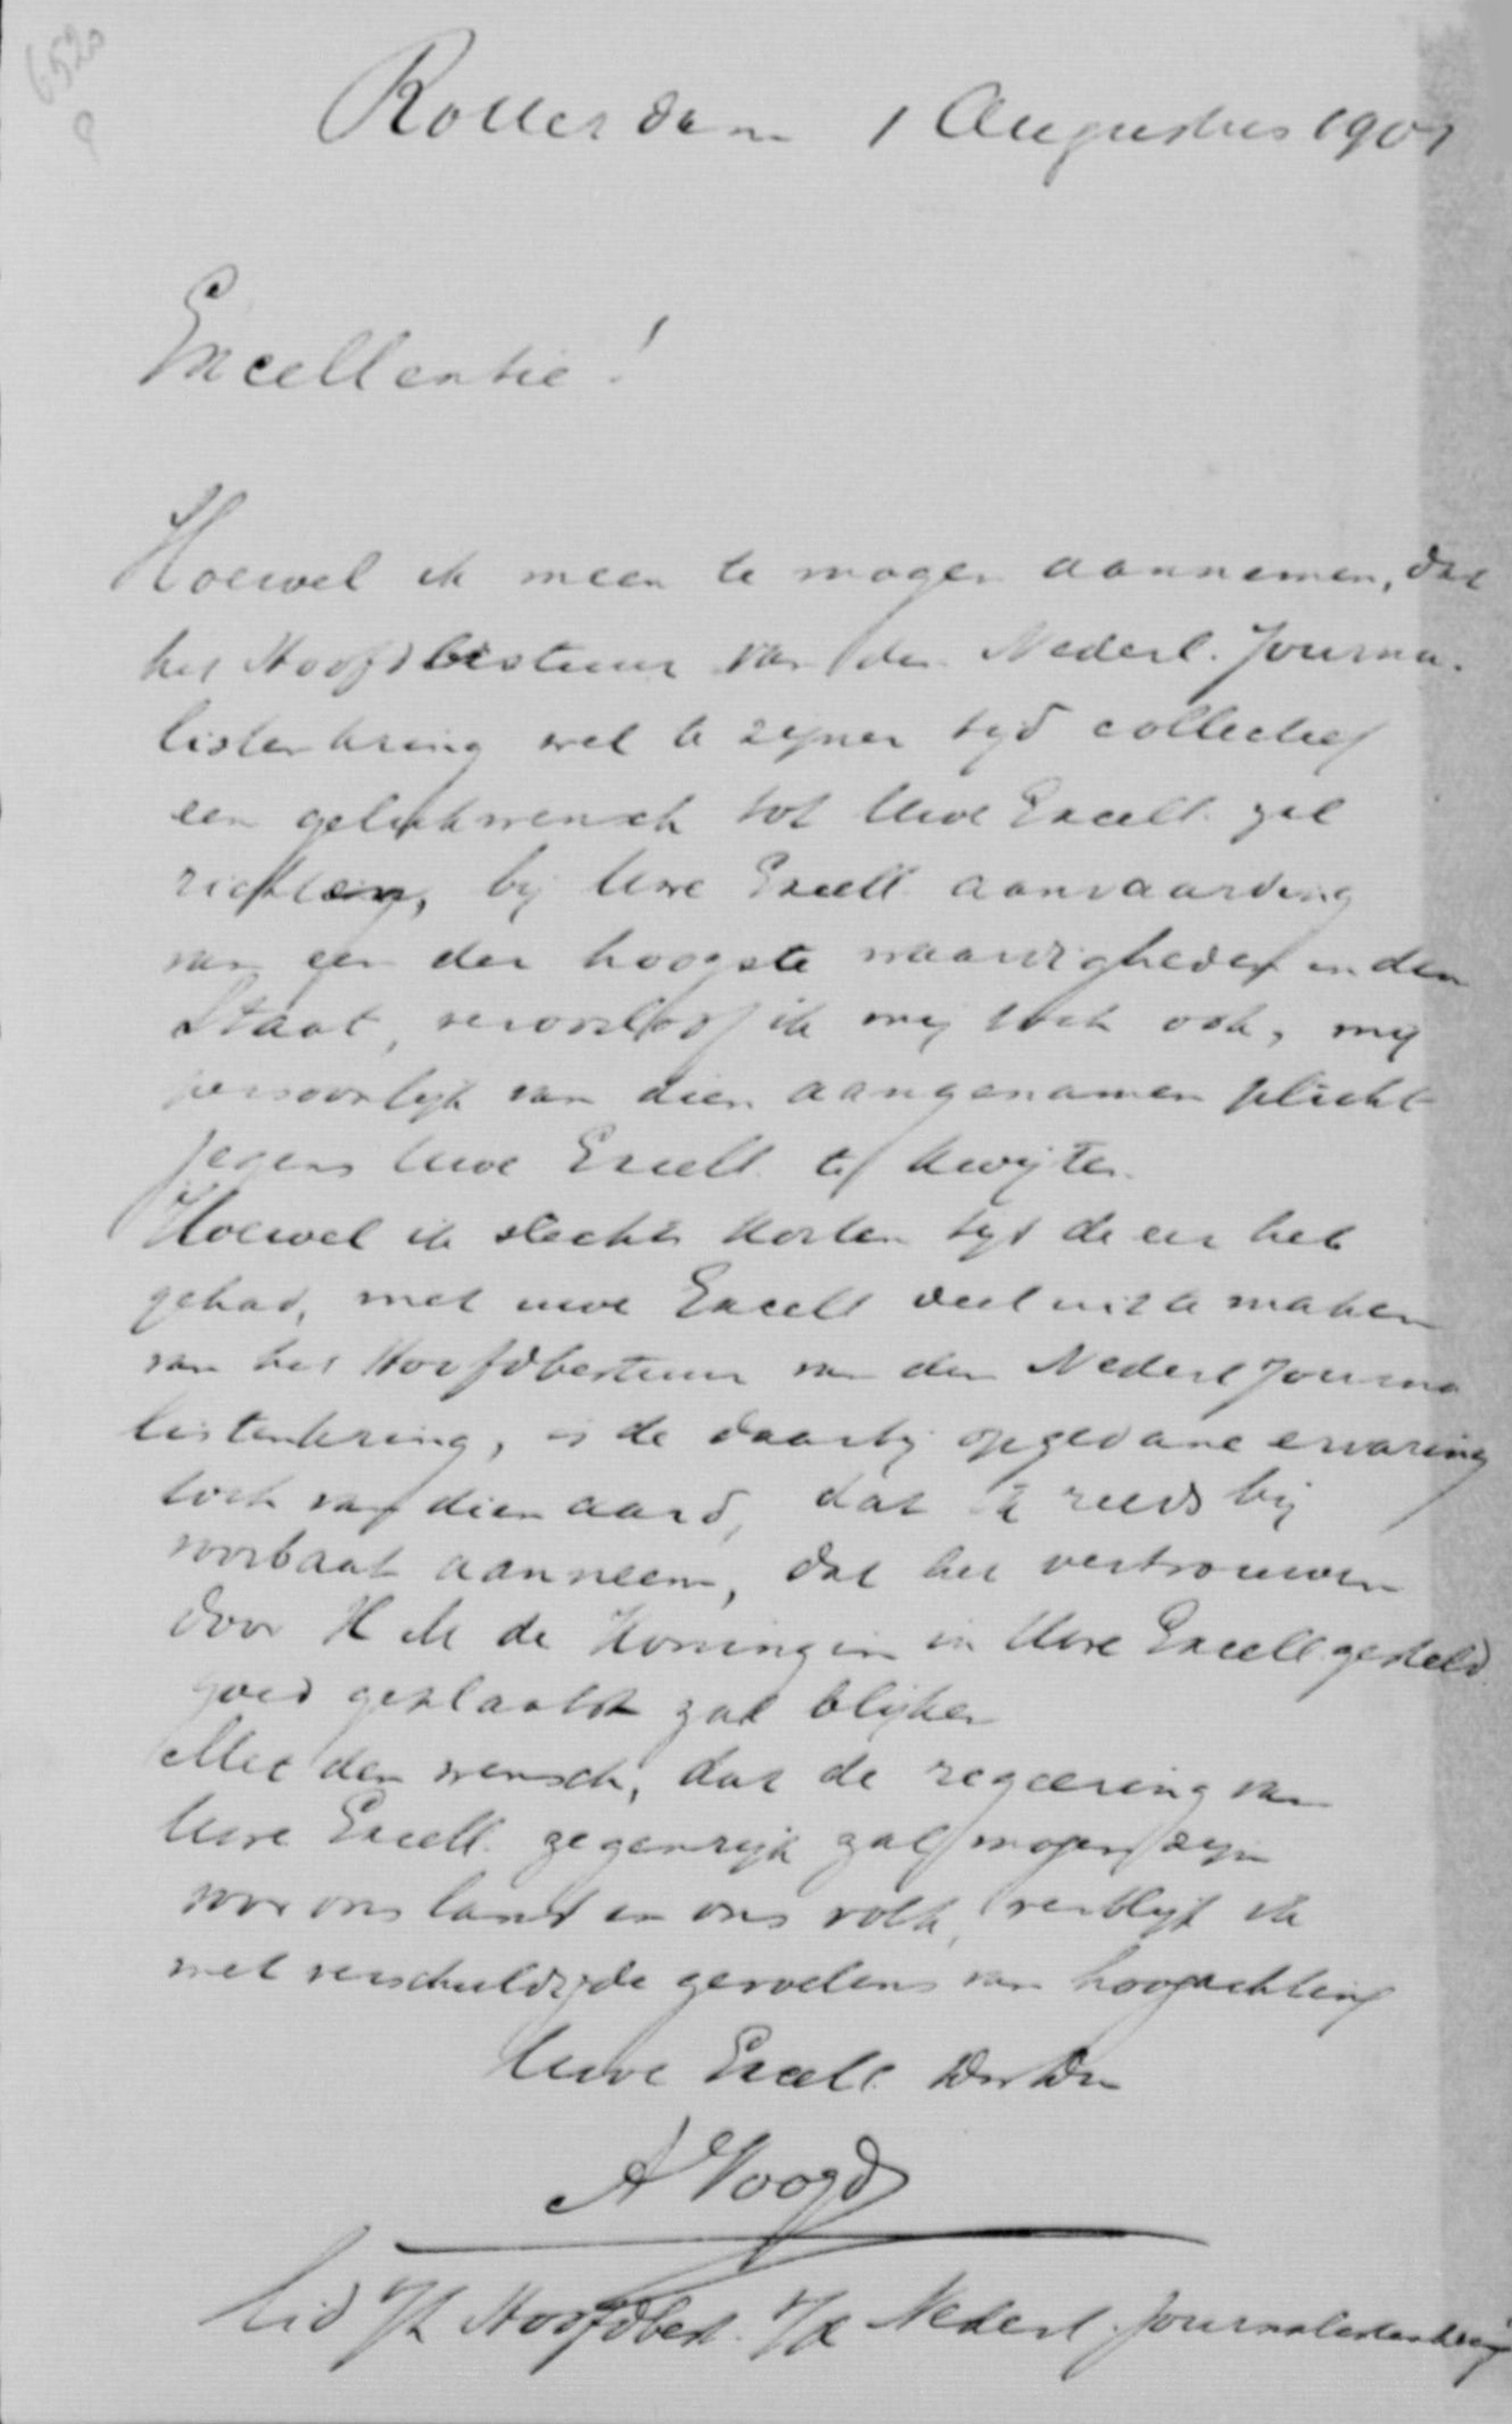 6520
a
Rotterdam 1 Augustus 1901
Excellentie!
Hoewel ik meen te mogen aannemen, dat
het Hoofdbestuur van den Nederl. Journa-
listenkring wel te zyner tyd collectief
een gelukwensch tot Uwe Excell. zal
richten, bij Uwe Excell aanvaarding
van een der hoogste waardigheden in den
Staat, veroorloof ik mij toch ook, mij
persoonlyk van dien aangenamen plicht
jegens Uwe Excell. te kwijten.
Hoewel ik slechts korten tyd de eer heb
gehad, met uwe Excell deel uit te maken
van het Hoofdbestuur van den Nederl Journa
listenkring, is de daarbij opgedane ervaring
toch van dien aard, dat ik reeds bij
voorbaat aanneem, dat het vertrouwen
door H M de Koningin in Uwe Excell. gesteld
goed geplaatst zal blijken
Met den wensch, dat de regeering van
Uwe Excell. zegenrijk zal mogen zijn
voor ons land en ons volk, verblijf ik
met verschuldigde gevoelens van hoogachting
Uwe Excell.
A Voogd
Lid v/h Hoofdbest. v/d Nederl. Journalistenkring